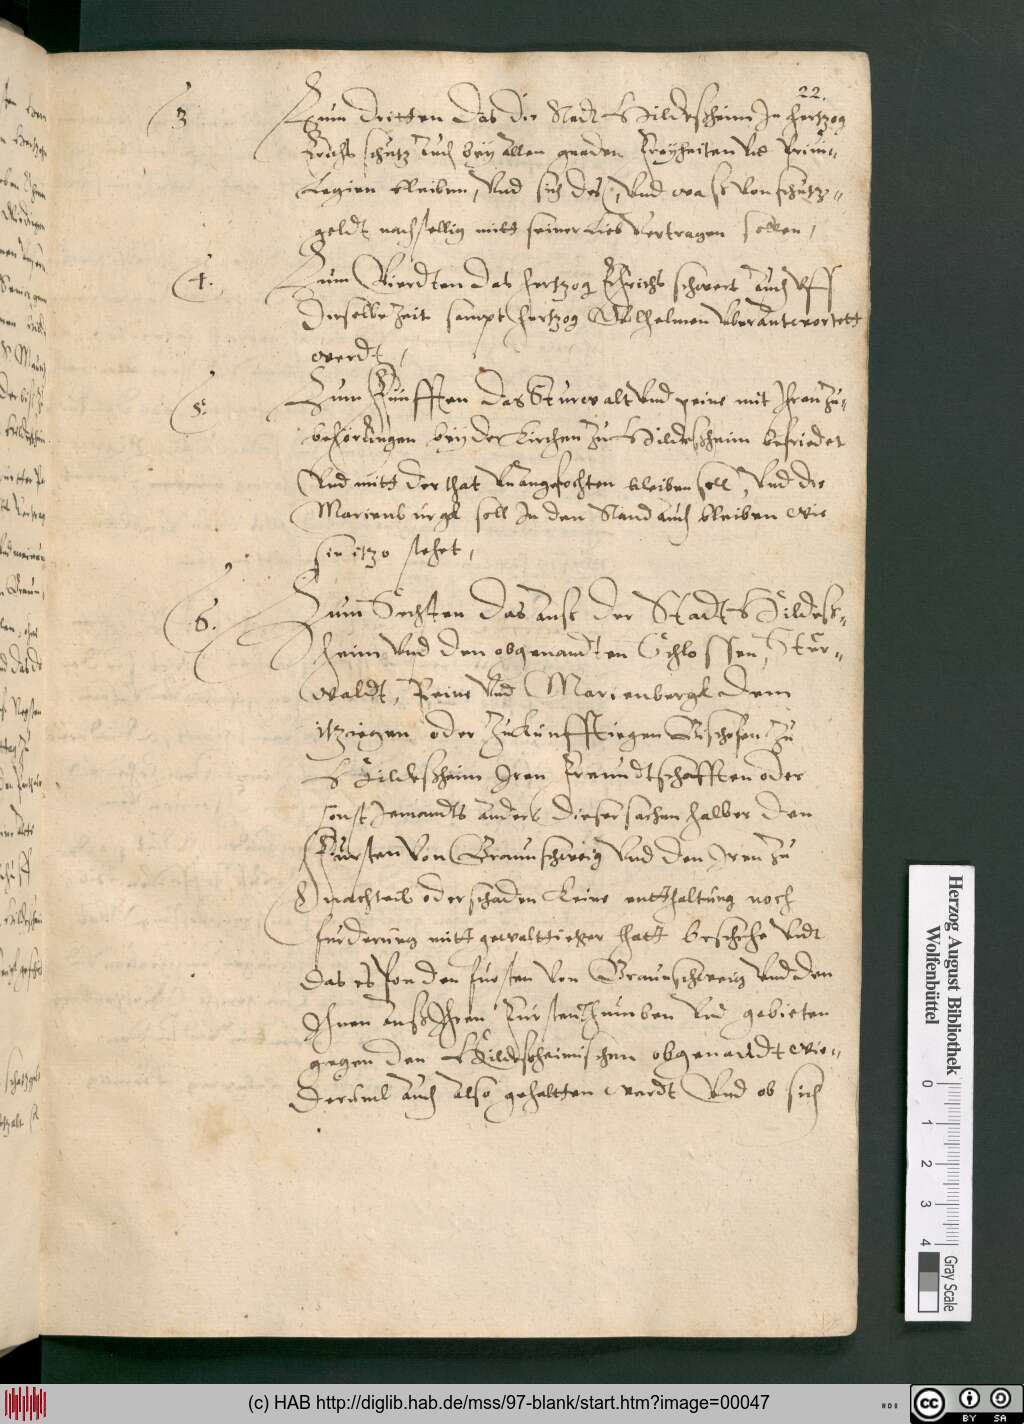 22.
3
Zum dritten das die Stadt Hildeßheim In hertzog
Erichs schutz auch bey allen gnaden freyheiten vnd Privi-
legien bleiben, Vnd sich des, Vnd was von schutz-
geldt nachstellig mitt seiner Lieb Vertragen sollen,
4.
Zum Vierdten das hertzog Erichs schwert auch vff
dieselbe Zeit sampt hertzog Wilhelmen vberantwortett
werdt,
5.
Zum Funfften das Sturwalt Vnd peine mit Ihren Zu-
behördingen bey der Kirchen zu Hildeßheim befriedet
Vnd mitt der that vnangefochten bleiben soll, Vnd die
Marienburgk soll In den Stand auch bleiben wie
sie itzo stehet,
6.
Zum Sechsten das auß der Stadt Hildeß-
heim Vnd den obgenandten Schlossen, Stur-
waldt, Peine Vnd Marienbergk dem
itzigen oder Zukunfftiegen Bischofen zu
Hildeßheim Iren Freundtschafften oder
sonst Jemandts anders dieser sachen halber den
Fursten von Braunschweig Vnd den Iren zu
nachteil oder schaden keine entthaltung noch
furderung mitt gewalttieger thatt beschehe Vndt
das es von den fursten von Braunschweig Vnd den
Ihren auß Ihren Furstenthumben vnd gebieten
gegen den Hildeßheimischen obgenandt wie-
derumb auch also gehaltten werdt Vnd ob sich
Herzog August Bibliothek
Wolfenbüttel
0 1 2 3 4
Gray Scale
(c) HAB http://diglib.hab.de/mss/97-blank/start.htm?image=00047
cc BY SA